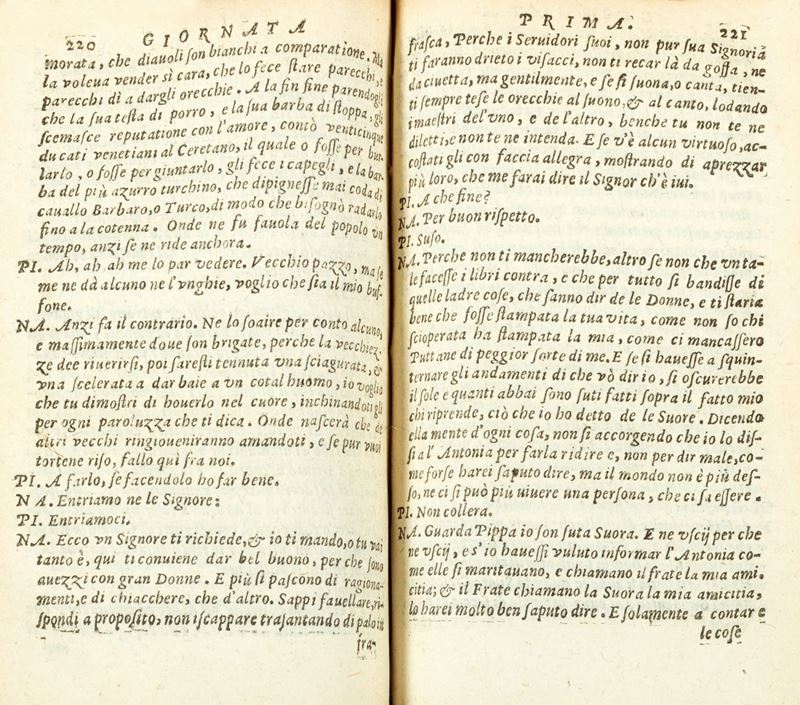 220 GIORNATA
morata, che diauoli son bianchi a comparatione. Ma
la voleua vender sì cara, che lo fece stare parecchi, e
parecchi dì a dargli orecchie. A la fin fine parendogli
che la sua testa di porro, e la sua barba di stoppa, gli
scemasce reputatione con l'amore, contò venticinque
ducati venetiani al Ceretano, il quale o fosse per bur
larlo, o fosse per giuntarlo, gli fece i capegli, e la bar-
ba del più azurro turchino, che dipignesse mai coda di
cauallo Barbaro, o Turco, di modo che bisognò radarlo
fino a la cotenna. Onde ne fu fauola del popolo vn
tempo, anzi se ne ride anchora.
PI. Ah, ah ah me lo par vedere. Vecchio pazzo, ma se
me ne dà alcuno ne l'vnghie, voglio che sia il mio buf
fone.
NA. Anzi fa il contrario. Ne lo soaire per conto alcuno,
e massimamente doue son brigate, perche la vecchiez-
ze dee riuerirsi, poi saresti tennuta vna sciagurata, &
vna scelerata a dar baie a vn cotal huomo, io voglio
che tu dimostri di houerlo nel cuore, inchinandoti gli
per ogni paroluzza che ti dica. Onde nascerà che di
altri vecchi ringioueniranno amandoti, e se pur vuoi
tortene riso, fallo qui fra noi.
PI. A farlo, se facendolo ho far bene.
NA. Entriamo ne le Signore:
PI. Entriamoci.
NA. Ecco vn Signore ti richiede, & io ti mando, o tu vai
tanto è, qui ti conuiene dar bel buono, per che sono
auezzi con gran Donne. E più si pascono di ragiona-
menti, e di chiacchere, che d'altro. Sappi fauellare, ri-
spondi a proposito, non iscappare trasantando di palo in
fra-
PRIMA. 221
frasca, Perche i Seruidori suoi, non pur sua Signoria
ti faranno drieto i visacci, non ti recar là da goffa, ne
da ciuetta, ma gentilmente, e se si suona, o canta, tien-
ti sempre tese le orecchie al suono, & al canto, lodando
i maestri del'vno, e de l'altro, benche tu non te ne
diletti, e non te ne intenda. E se v'è alcun virtuoso, ac-
costati gli con faccia allegra, mostrando di aprezzar
più loro, che me farai dire il Signor ch'è iui.
PI. A che fine?
NA. Per buon rispetto.
PI. Suso.
NA. Perche non ti mancherebbe, altro se non che vn ta-
le facesse i libri contra, e che per tutto si bandisse di
quelle ladre cose, che sanno dir de le Donne, e ti staria
bene che fosse stampata la tua vita, come non so chi
scioperata ha stampata la mia, come ci mancassero
Puttane di peggior sorte di me. E se si hauesse a squin-
ternare gli andamenti di che vò dir io, si oscurerebbe
il sole e quanti abbai sono suti fatti sopra il fatto mio
chi riprende, ciò che io ho detto de le Suore. Dicendo
ella mente d'ogni cosa, non si accorgendo che io lo dis-
si a l'Antonia per farla ridire e, non per dir male, co-
me forse harei saputo dire, ma il mondo non è più des-
so, ne ci si può più uiuere una persona, che ci sa essere.
PI. Non collera.
NA. Guarda Pippa io son suta Suora. E ne vscij per che
ne vscij, e s'io hauessi vuluto informar l'Antonia co-
me elle si maritauano, e chiamano il frate la mia ami.
citia; & il Frate chiamano la Suora la mia amicitia,
lo harei molto ben saputo dire. E solamente a contar e
le cose